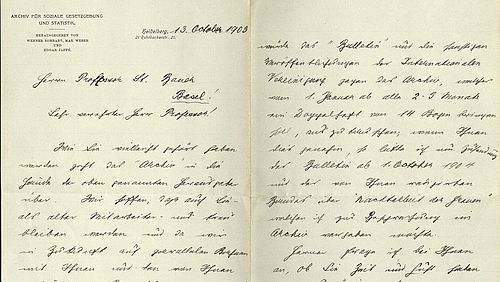 ARCHIV FÜR SOZIALE GESETZGEBUNG
UND STATISTIK.
HERAUSGEGEBEN VON
WERNER SOMBART, MAX WEBER
UND
EDGAR JAFFÉ.
Heidelberg, 13. October 1903
Herrn Professor St. Bauer
Basel!
Sehr verehrter Herr Professor!
Wie Sie vielleicht gehört haben
werden geht das "Archiv" in die
Hände der oben genannten Herausgeber
über. Wir hoffen, dass auch Sie
als alter Mitarbeiter uns treu
bleiben werden und da wir
in Zukunft auf parallelen Bahnen
mit Ihnen und den von Ihnen
würde das "Bulletin" und die sonstigen
Veröffentlichungen der Internationalen
Vereinigung gegen das Archiv, welches
vom 1. Januar ab alle 2-3 Monate
ein Doppelheft von 14 Bogen bringen
soll, auszutauschen; wenn Ihnen
das genehm, so bitte ich um
des Bulletin ab 1. October 1904
und der von Ihnen
Bandes über "Nachtarbeit der Frauen"
welchen ich zur Besprechung im
Archiv vergeben möchte.
Ferner frage ich bei Ihnen
an, ob Sie Zeit und Lust haben